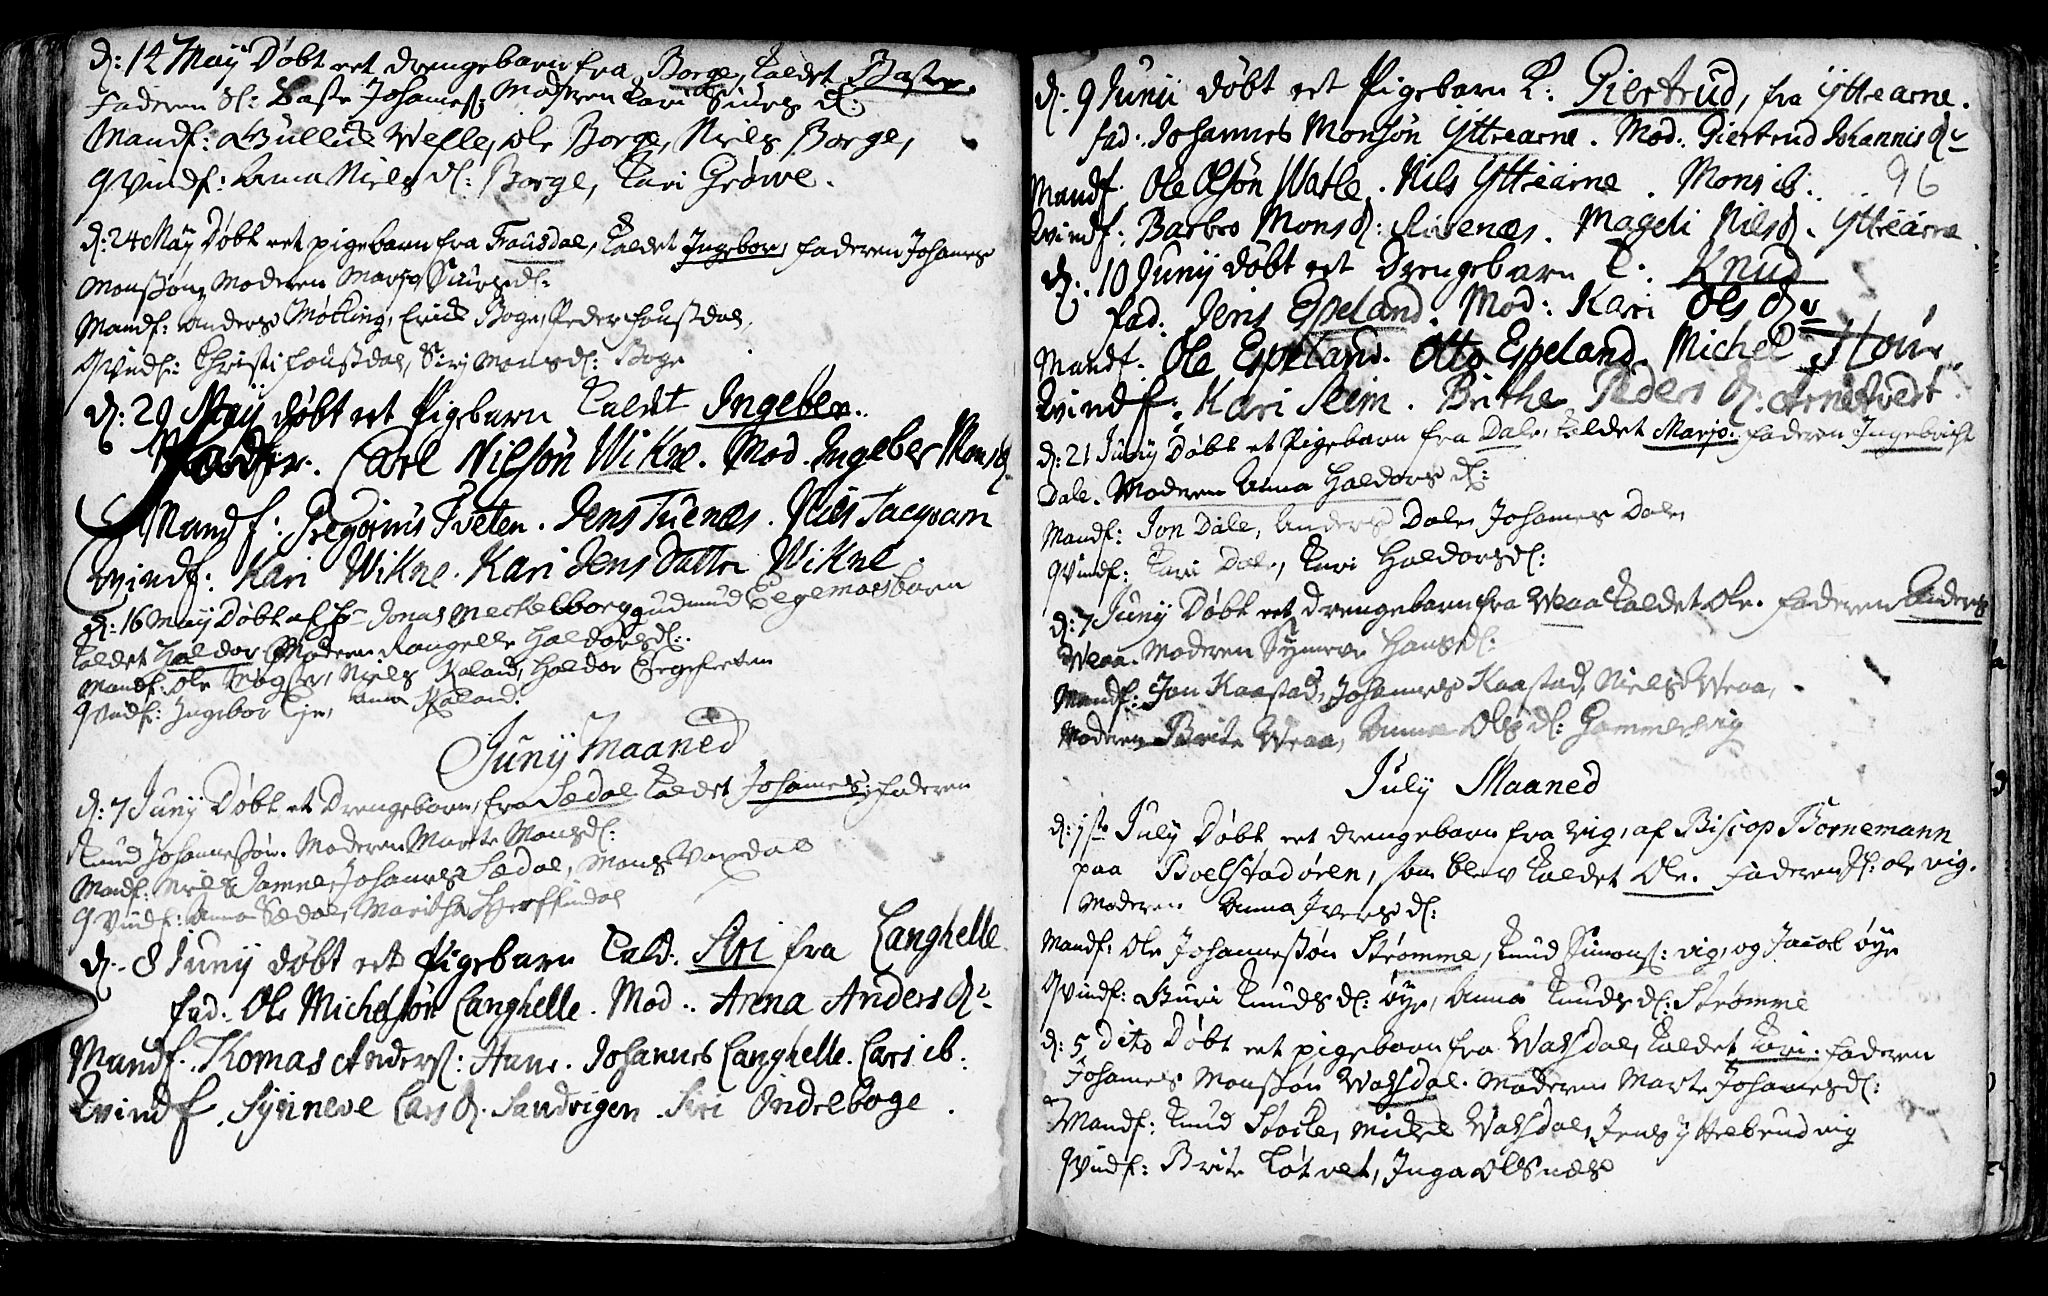 d: 12 May Døbt eet drengebarn fra Borge, kaldet Baste.
Faderen Sl: Baste Johannes: Moderen Kari Siurs d:
Mandf: Gullik Wefle, Ole Borge, Niels Borge,
Qvindf: Anna Niels d: Borge, Kari Grøwe.
d: 24 May Døbt eet pigebarn fra Fousdal, kaldet Ingebor, faderen Johanes
Monssøn, Moderen Marjo Siursd:
Mandf: Anders Møkling, Erick Boge, Peder fousdal,
Qvindf: Christi fousdal, Siri Monsd: Boge
d: 29 Maÿ døbt eet Pigebarn kaldet Ingeber.
Fader. Carl Nilsøn Wikne. Mod. Ingeber Mons d.
Mandf: Gregorius Tveten. Jens Tuenæs. Nils Tacqvam
Qvindf: Kari Wikne. Kari Jens Datter Wikne
d: 16 May Døbt af Hr Jonas Meckelborg gudmund Elgemosbarn
kaldet Haldor Moderen Rangelle Haldorsd:
Mandf: Ole Niels Kaland, Haldor
Qvindf: Ingebor Eje, Anna Kaland.
Junÿ Maaned
d: 7 Juny Døbt et Drengebarn, fra Sædal kaldet Johannes; faderen
Knud Johannessøn. Moderen Marte Monsd:
Mandf: Niels Jamne, Johannes Sædal, Mons Vaxdal
Qvindf: Anna Sædal, Maritha Herffindal
d. 8 Junÿ døbt eet Pigebarn kald: Siri fra Langhelle
fad: Ole Michelsøn Langhelle. Mod: Anna Anders dr
Mandf. Thomas Anders: Hane. Johannes Langhelle. Lars ib.
Qvindf. Synneve Lars d. Sandvigen. Siri Ondelboge.
d. 9 Junii døbt eet Pigebarn K: Giertrud, fra Yttrearne.
fad: Johannes Monsøn Yttrearne. Mod: Giertrud Johannis dr
Mandf. Ole Olsøn Watle. Nils Yttrearne. Mons ib. 96
Qvindf: Barbro Mons d: Risenæs. Mageli Nilsd. Yttrearne
d. 10 Junÿ døbt eet Drengebarn K: Knud
fad: Jens Espeland. Mod: Kari Ols dr
Mandf. Ole Espeland. Otto Espeland. Michel Hour
Qvindf: Kari Seim. Brithe Peders d: Arnetvedt
d: 21 Juny Døbt et Pigebarn fra Dale, kaldet Marjo: faderen Ingebricht
Dale. Moderen Anna Haldors d:
Mandf: Jon Dale, Anders Dale, Johanes Dale,
Qvindf: Kari Dale, Kari Haldorsd:
d: 7 Juny Døbt eet drengebarn fra Weaa kaldet Ole. faderen Anders
Weaa. Moderen Synneve Hansd:
Mandf: Jon Kaastad, Johannes Kaastad, Niels Weaa,
Moderen Brite Weaa, Anna Olsd: Hammersvig
July Maaned
d: 1ste July Døbt eet drengebarn fra vig, af Biscop Bornemann
paa Boelstadøren, som blev kaldet Ole. Faderen Sl: Ole vig.
Moderen Anna Ivers d:
Mandf: Ole Johannessøn Strømme, Knud Simons: vig, og Jacob øye
Qvindf: Guri Knuds d: øye, Anna Knuds d: Strømme
d: 5 dito Døbt eet pigebarn fra Walsdal, kaldet Kari. faderen
Johannes Monssøn Walsdal. Moderen Marte Johanesd:
Mandf: Knud Støcle, Mickel Walsdal, Jens
Qvindf: Brite Løtvet, Inga Olsnæs